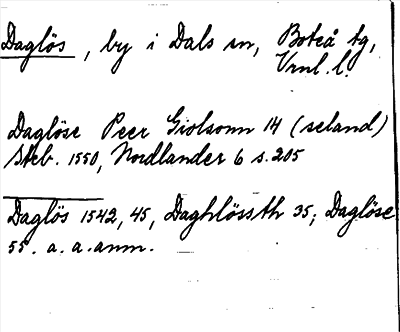 Daglös, by i Dals sn, Boteå tg,
Vrnl. l.
Daglöse Peer Giolsonn 14 (seland)
Skeb. 1550, Nordlander 6 s. 205
Daglös 1542, 45, Daghlössth 35; Daglöse
55. a. a. anm.